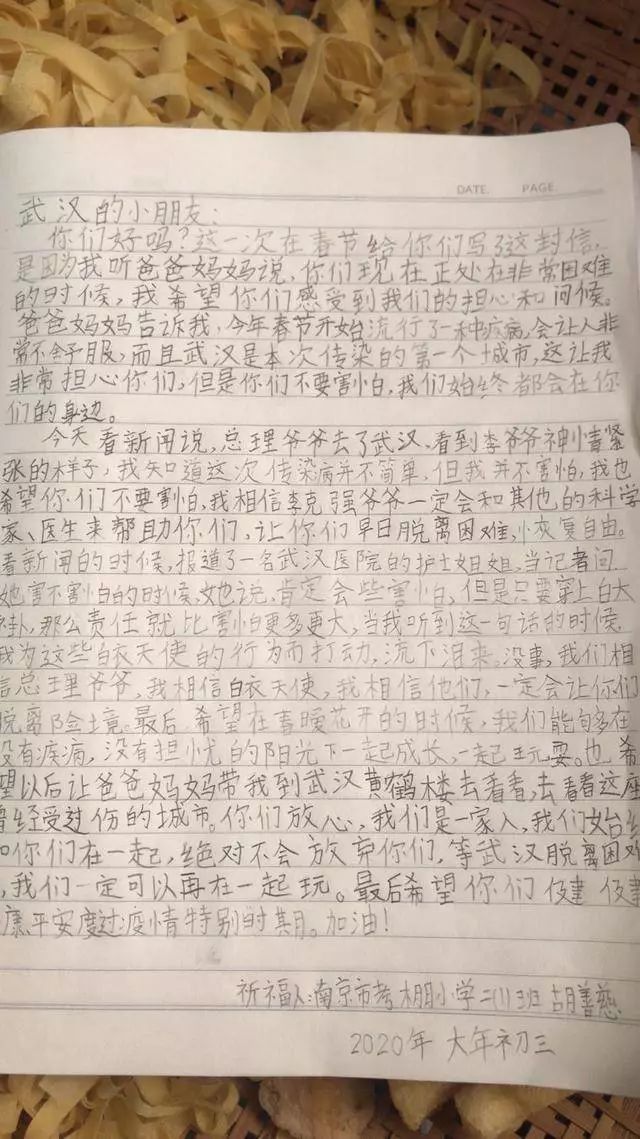 DATE. PAGE.
武汉的小朋友：
你们好吗？这一次在春节给你们写了这封信，
是因为我听爸爸妈妈说，你们现在正处在非常困难
的时候，我希望你们感受到我们的担心和问候。
爸爸妈妈告诉我，今年春节开始流行了一种疾病，会让人非
常不舍予服，而且武汉是本次传染的第一个城市，这让我
非常担心你们，但是你们不要害怕，我们始终都会在你
们的身边。
今天看新闻说，总理爷爷去了武汉，看到李爷爷神情紧
张的样子，我知道这次传染病并不简单，但我并不害怕，我也
希望你们不要害怕，我相信李克强爷爷一定会和其他的科学
家、医生来帮助你们，让你们早日脱离困难，恢复自由。
看新闻的时候，报道了一名武汉医院的护士姐姐，当记者问
她害不害怕的时候，她说，肯定会些害怕，但是只要穿上白大
卦，那么责任就比害怕更多更大，当我听到这一句话的时候
我为这些白衣天使的行为而打动，流下泪来。没事，我们相
信总理爷爷，我相信白衣天使，我相信他们，一定会让你们
脱离险境。最后，希望在春暖花开的时候，我们能够多在
没有疾病，没有担忧的阳光下一起成长，一起玩耍。也希
望以后让爸爸妈妈带我到武汉黄鹤楼去看看，去看看这座
曾经受过伤的城市。你们放心，我们是一家人，我们始终
和你们在一起，绝对不会放弃你们，等武汉脱离困难
，我们一定可以再在一起玩。最后希望你们健健
康平安度过疫情特别时期。加油！
祈福人：南京市考棚小学二(1)班 胡善慈
2020年 大年初三